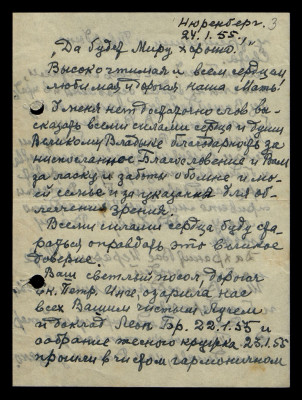 Нюренберг. 3
24.1.55.
„Да будет Миру хорошо."
Высокочтимая и всем сердцем
любимая и дорогая наша Мать!
У меня нет достаточно слов вы-
сказать всеми силами сердца и души
Великому Владыке благодарность за
ниспосланное Благословение и Вам
за ласку и заботы обо мне и мо-
ей семье и за указания для об-
легчения зрения.
Всеми силами сердца буду ста-
раться оправдать это великое
доверие.
Ваш светлый посол, дорогая
Ек. Петр. Инге, озарила нас
всех Вашим чистым Лучем
и доклад Леон. Бр. 22.1.55 и
собрание тесного кружка 23.1.55
прошли в чистом гармоничном